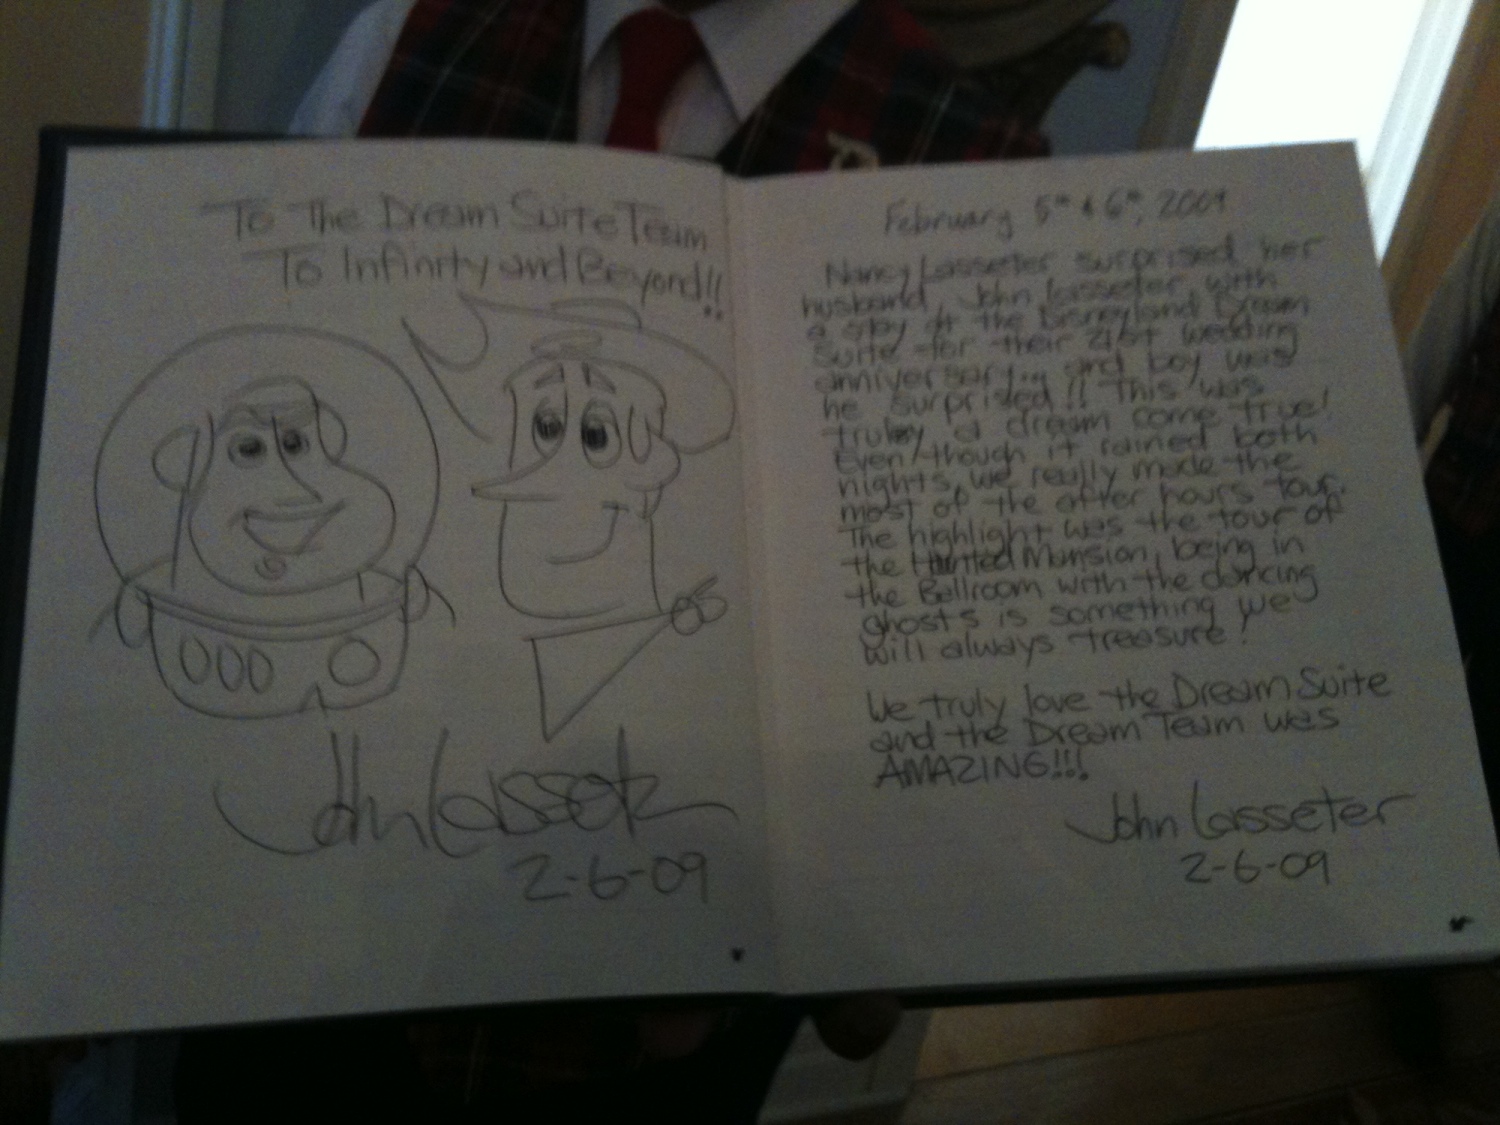 To The Dream Suite Team
To Infinity and Beyond!!
John Lasseter
2-6-09
February 5th & 6th, 2009
Nancy Lasseter surprised her
husband, John Lasseter, with
a stay at the Disneyland Dream
Suite for their 21st wedding
anniversary... and boy was
he surprised!! This was
truley a dream come true!
Even though it rained both
nights, we really made the
most of the after hours tour.
The highlight was the tour of
the Hunted Mansion, being in
the Ballroom with the dancing
ghosts is something we
will always treasure!
We truly love the Dream Suite
and the Dream Team was
AMAZING!!!
John Lasseter
2-6-09